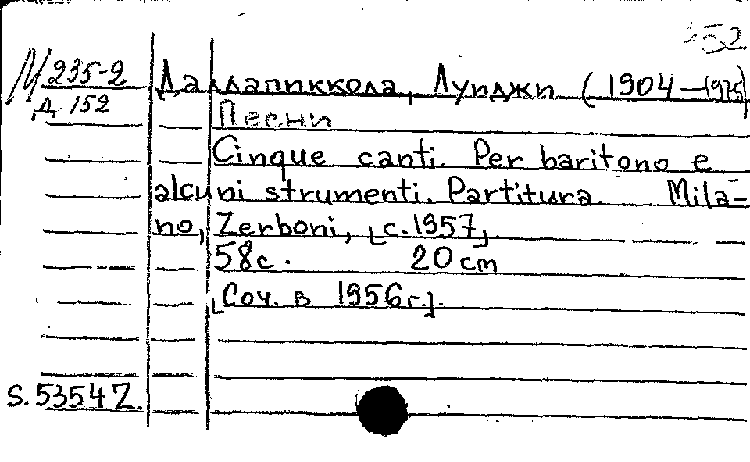 352
М 235-2
Д 152
Даллапиккола, Луиджи (1904–1975)
Песни
Cinque canti. Per baritono e
alcuni strumenti. Partitura. Mila-
no, Zerboni, [c.1957]
58с. 20 cm
[Соч. в 1956г.].
S.53547.